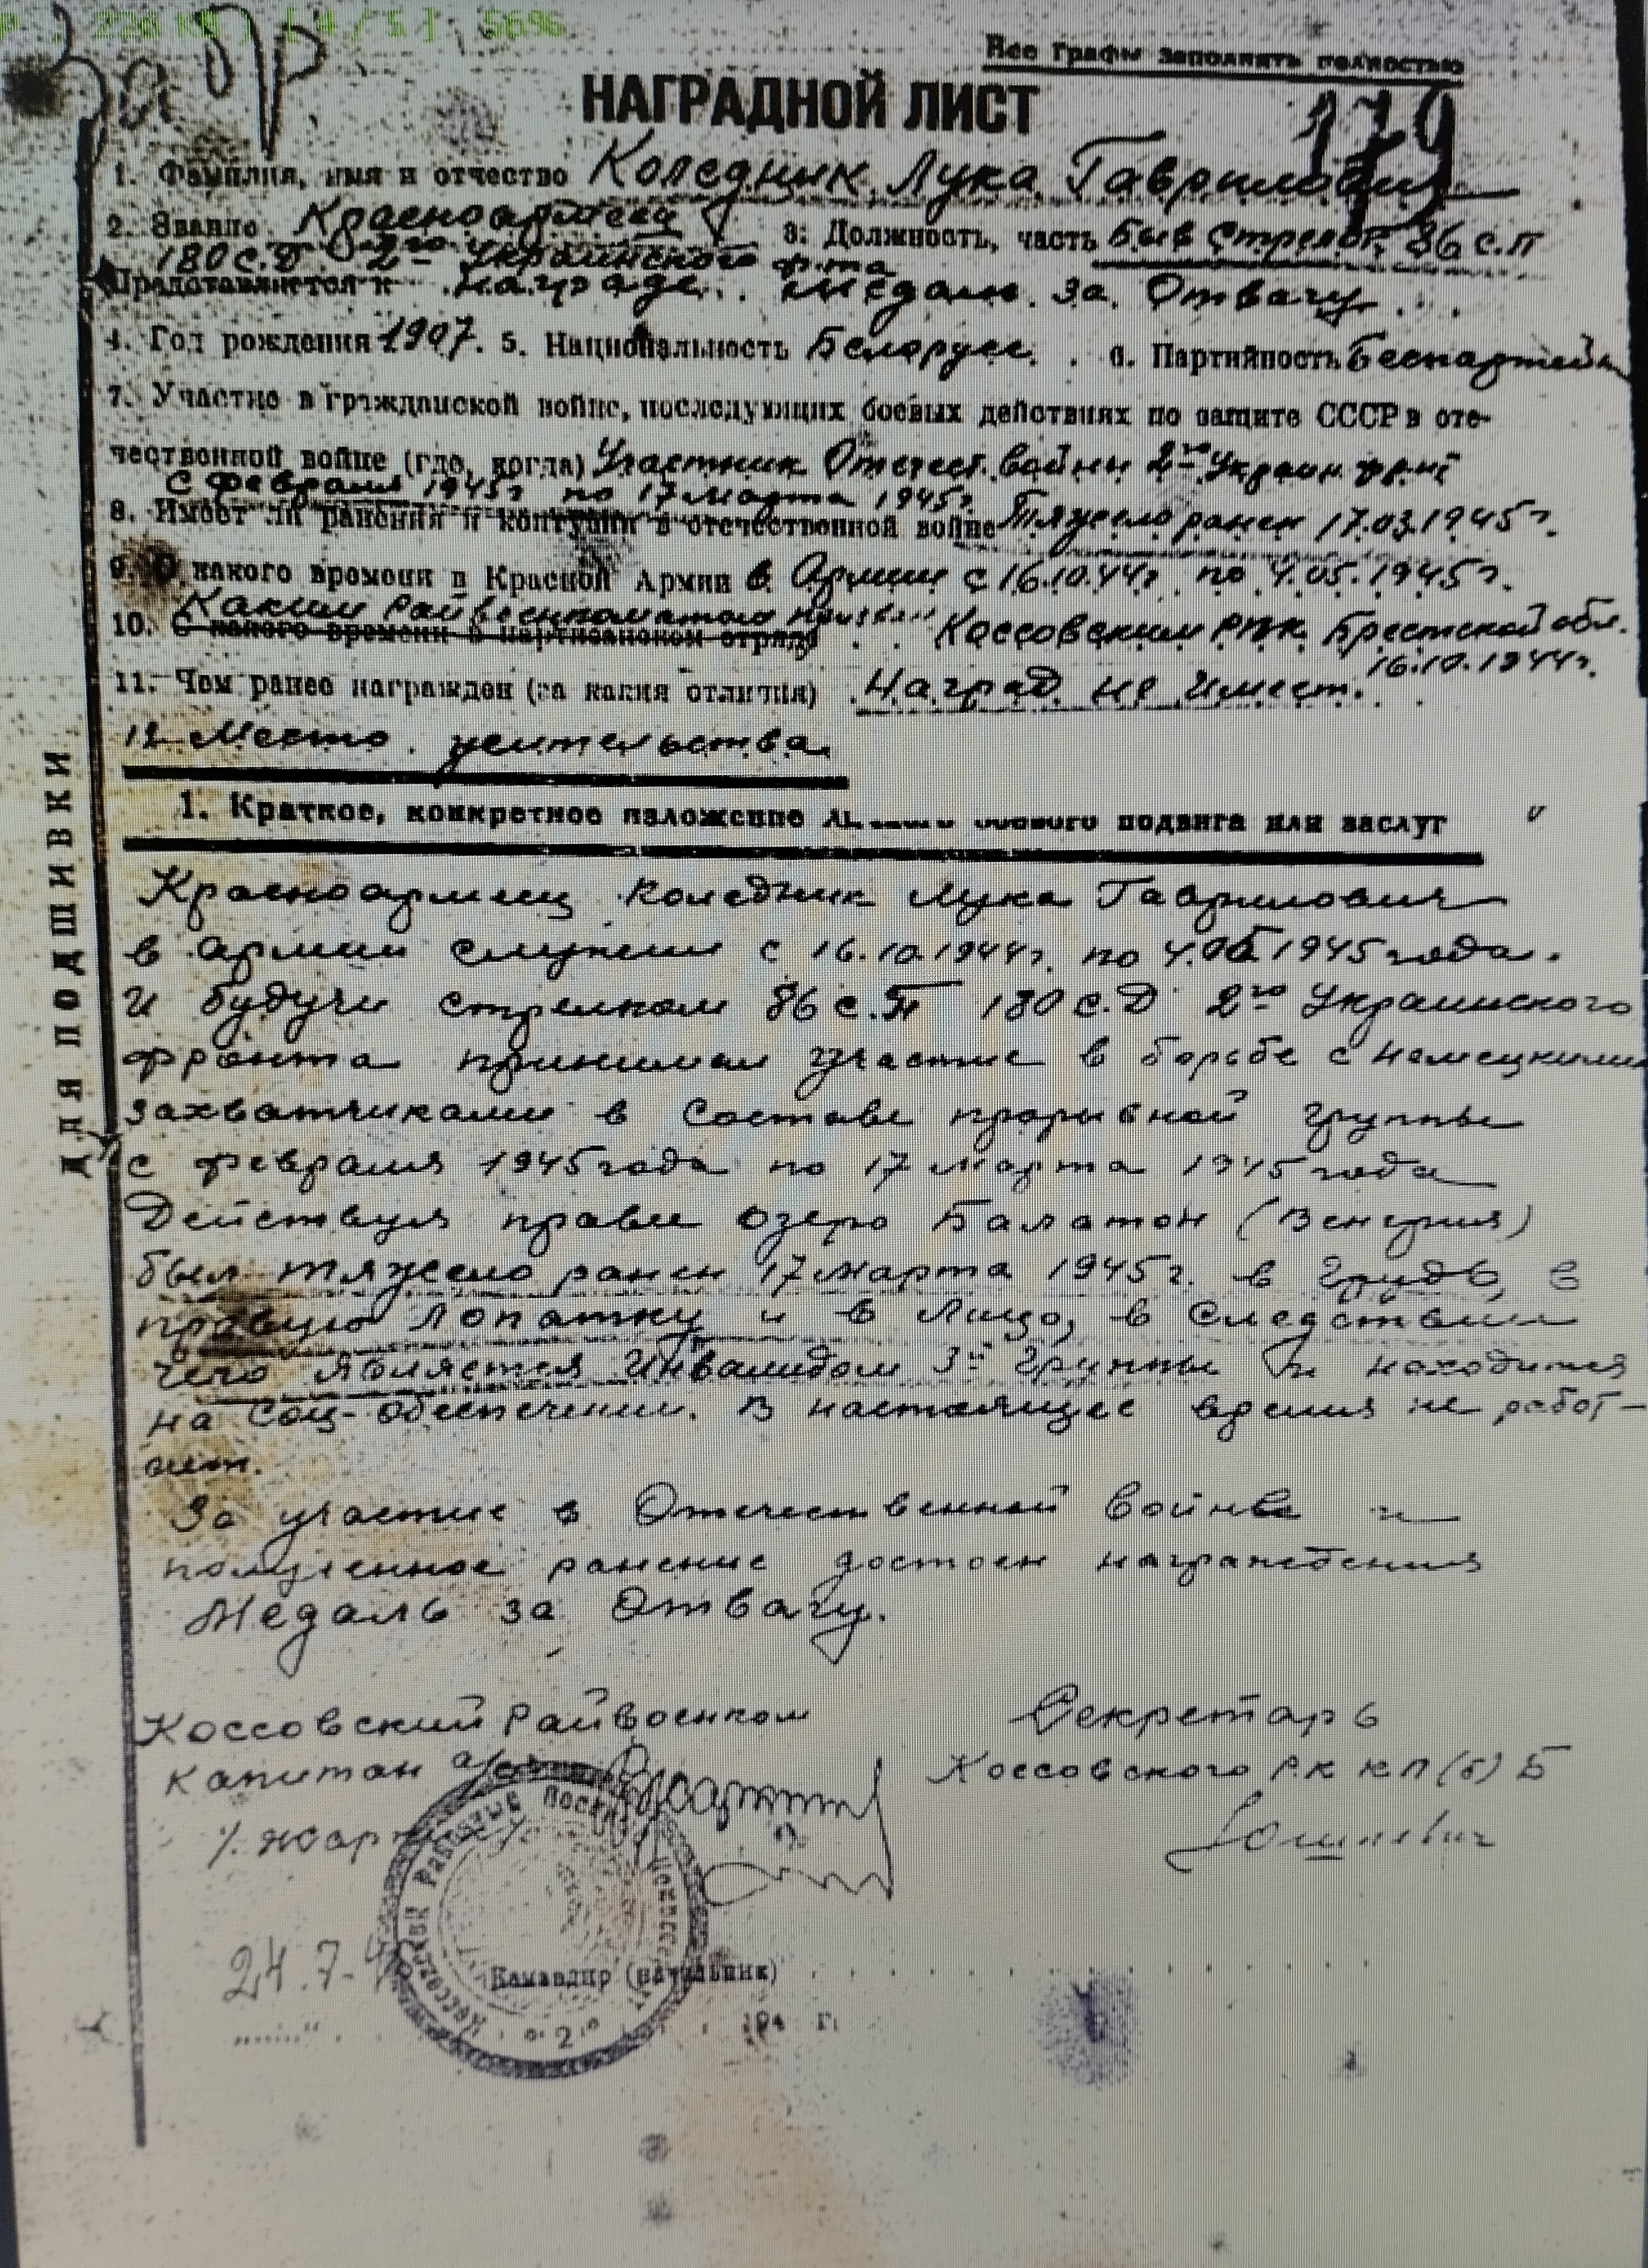 Все графы заполнять полностью
НАГРАДНОЙ ЛИСТ
179
1. Фамилия, имя и отчество Коледник Лука Гаврилович
2. Звание Красноармеец 3. Должность, часть Быв Стрелок 86 с.п
180 с.д 2го Украинского ф-та
Представляется к награде медали за Отвагу
4. Год рождения 1907. 5. Национальность Белорусс. 6. Партийность Беспартейн
7. Участие в гражданской войне, последующих боевых действиях по защите СССР в оте-
чественной войне (где, когда) Участник Отечест. войны 2го Украин.
с февраля 1945г по 17 марта 1945г.
8. Имеет ли ранения и контузии в отечественной войне Тяжело ранен 17.03.1945г.
9. С какого времени в Красной Армии в Армии с 16.10.44г. по 4.05.1945г.
Каким Райвоенкоматом призван
10. С какого времени в партизанском отряде Коссовским РВК Брестской обл.
16.10.1944г.
11. Чем ранее награжден (за какия отличия) Наград не имеет.
12 Место жительства
1. Краткое, конкретное изложение подвига или заслуг
ДЛЯ ПОДШИВКИ
Красноармеец Коледник Лука Гаврилович
в армии служил с 16.10.1944г. по 4.05 1945 года.
И будучи стрелком 86 с.П 180 с.Д 2го Украинского
фронта принимал участие в борьбе с немецкими
захватчиками в составе прорывной группы
с февраля 1945 года по 17 марта 1945 года
Действуя правее озеро Балатон (Венгрия)
был тяжело ранен 17 марта 1945г. в грудь, в
правую лопатку и в лицо, в следствии
чего является Инвалидом 3й группы и находится
на соц-обеспечении. В настоящее время не работ-
ает.
За участие в Отечественной войне и
полученное ранение достоен награждения
Медаль за Отвагу.
Коссовский Райвоенком Секретарь
капитан Коссовского РК КП(б)Б
24.7.4
Командир (начальник)
194 г.